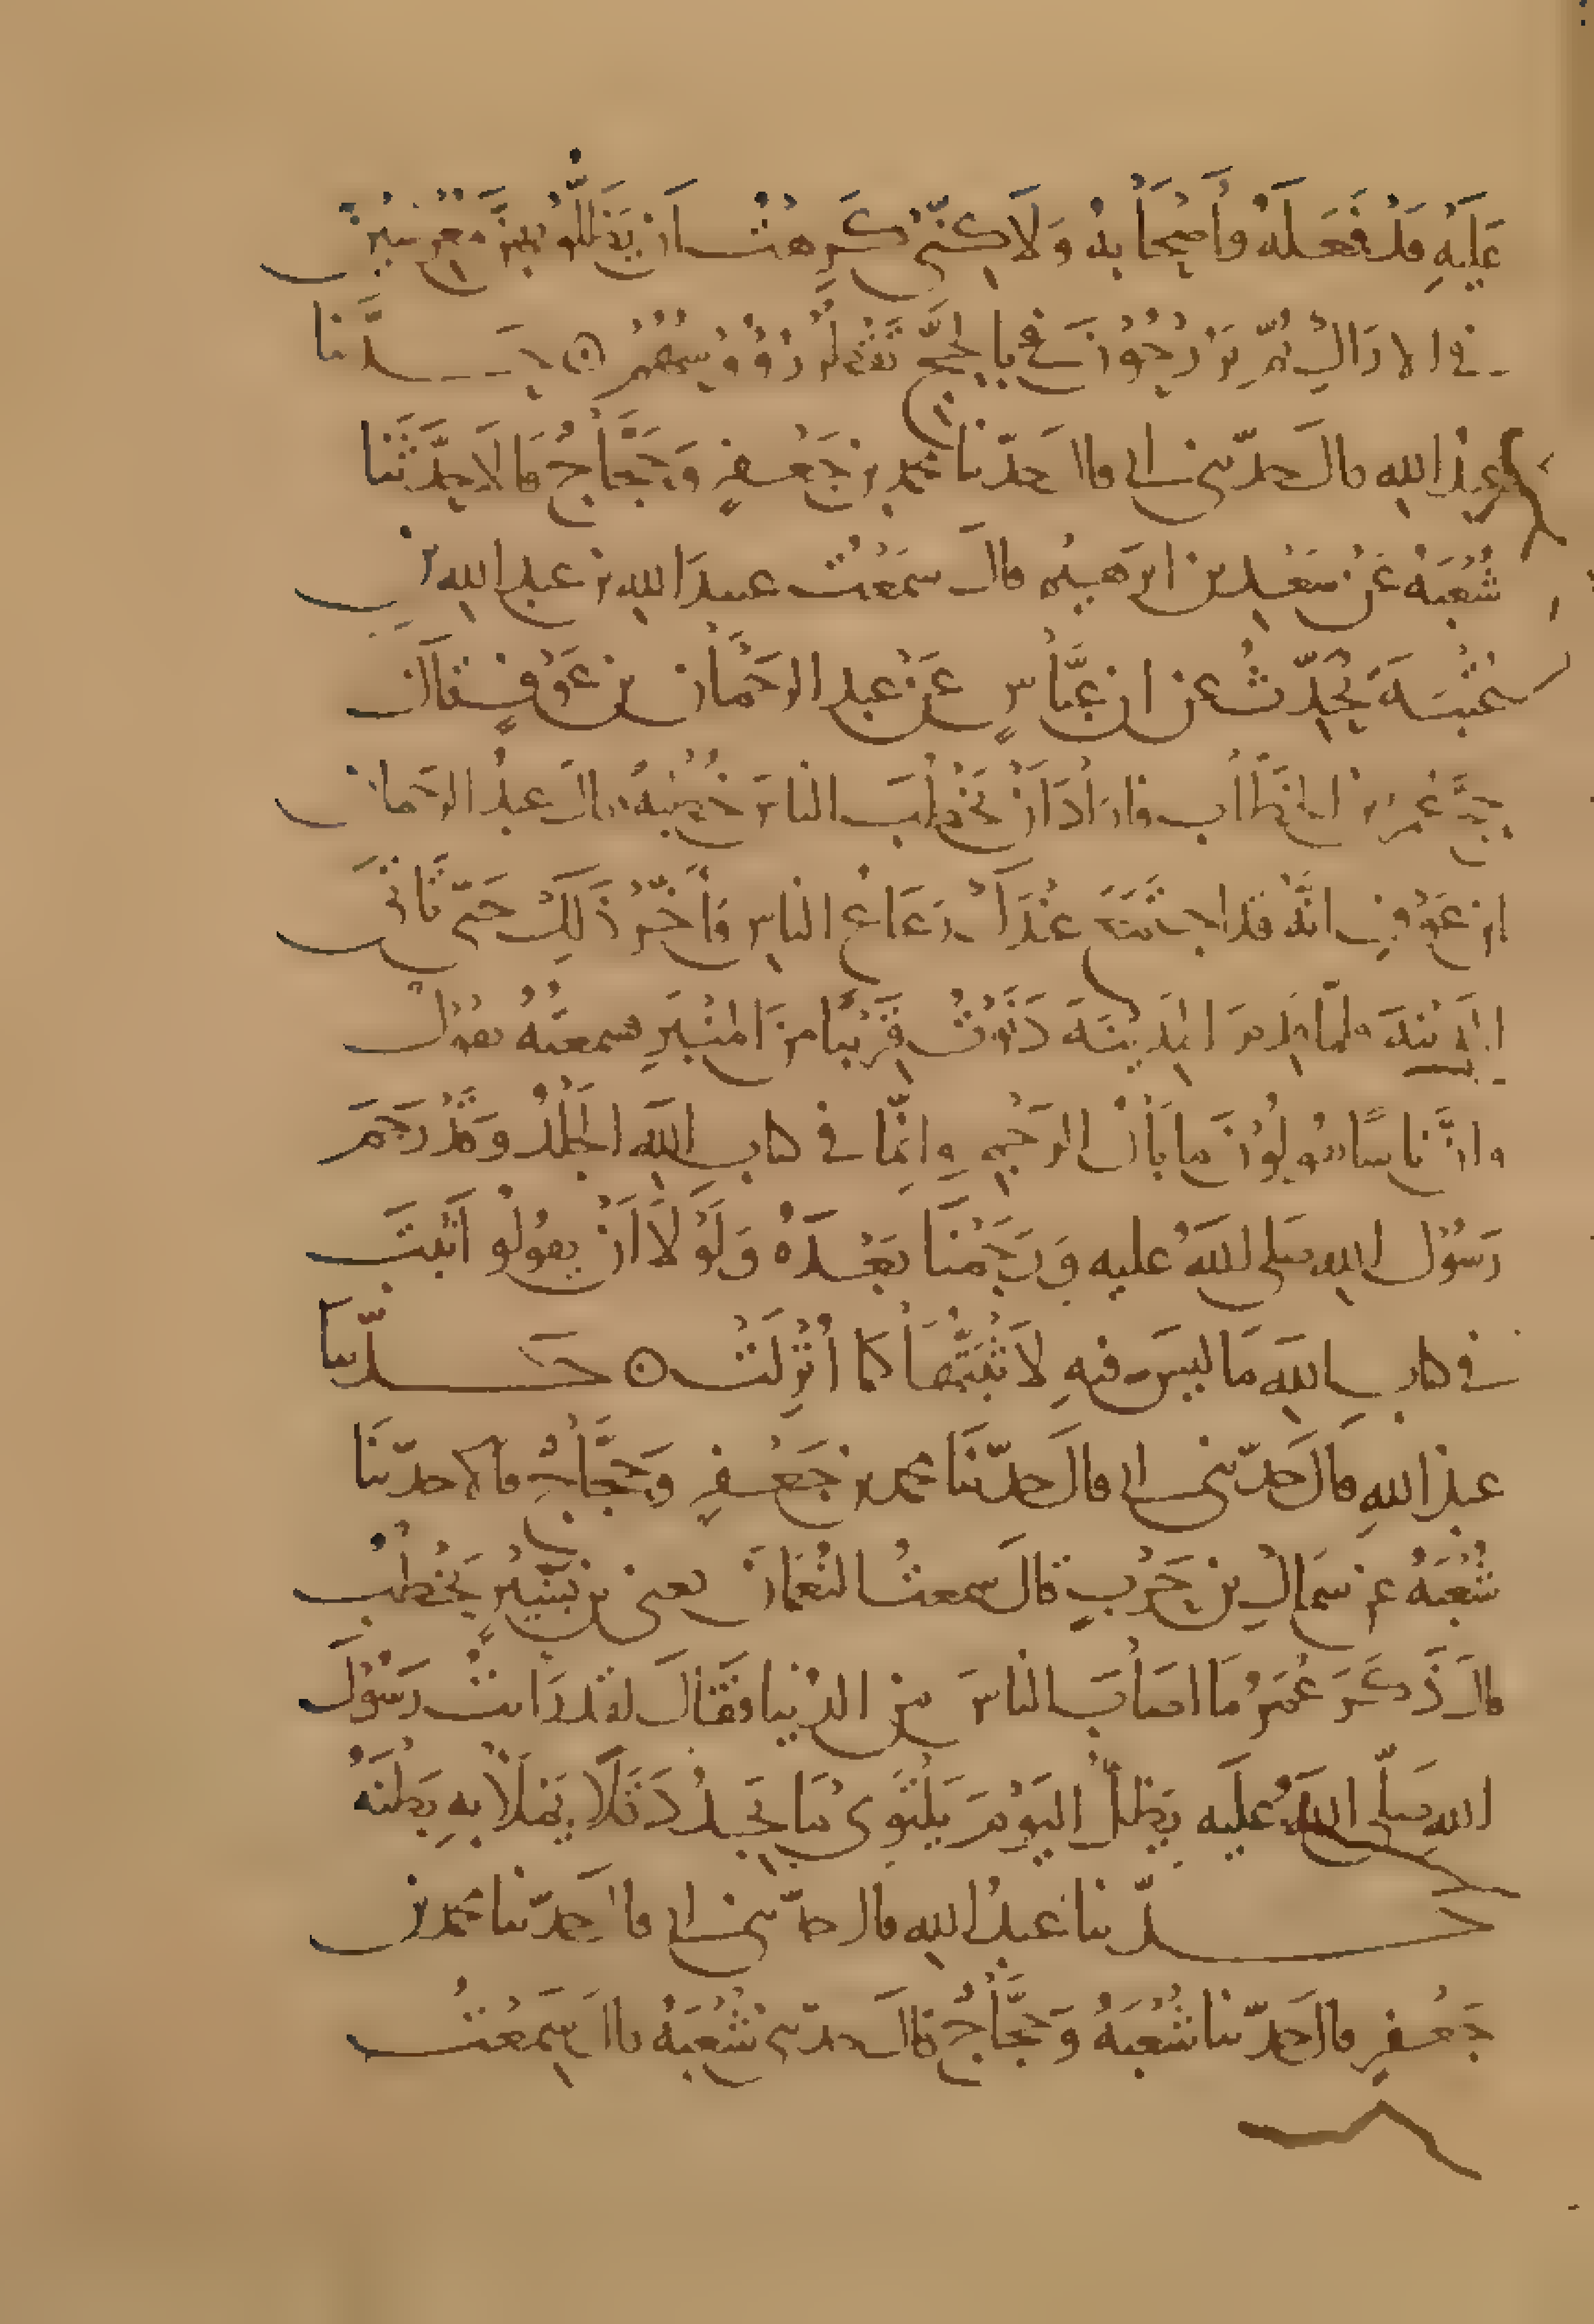 عَلَيْهِ قَدْ فَعَلَهُ وَأَصْحَابُهُ وَلَاكِنِّي كَرِهْتُ أَن يَظَلُّوا بِهِنَّ مُعْرِسِينَ
في الاراكِ ثُمَّ يَرُوحُونَ في بالحجِّ تَقْطُرُ رُؤُوسُهُمْ ۞ حَدَّثَنا
عبدُ الله قال حدّثني ابي قال حَدّثنا محمد بن جَعْفرٍ وَحَجَّاجُ قالَا حدَّثَنا
شُعْبَةُ عَنْ سَعْدِ بن ابرَهيم قالَ سَمعْتُ عبيدَ اللهِ بن عبد اللهِ بن
عُتْبَةَ يُحَدِّثُ عن ابن عبَّاسٍ عَنْ عبد الرحْمَان بن عَوْفٍ قال
حجَّ عُمر بن الخَطَّاب فارَادَ أَنْ يَخْطُبَ الناسَ خُطْبَةً فقال عبدُ الرحمان
ابن عَوْفٍ انَّهُ قد اجْتَمَعَ عِنْدَكَ رَعَاعُ الناسِ فَأَخِّرْ ذَلِكَ حَتّى تَأتيَ
المدِينةَ فلمّا قدِمَ المَدِينَةَ دَنَوْتُ قَرِيْبًا مِنَ المنْبَرِ فسمعتُهُ يقولُ
وانَّ نَاسًا يقولُونَ ما بَالُ الرَجْمِ وإنّمَا في كتابِ اللهِ الجَلْدُ وَقَدْ رَجَمَ
رَسُوْلُ اللهِ صلى اللهُ عليه وَرَجَمْنَا بَعْدَهُ وَلَوْلَا أَنْ يقولُوْ أثْبَتَ
في كتابِ اللهِ مَا ليسَ فيهِ لَأَثْبَتُّهَا كمَا أُنْزِلَتْ ۞ حَدّثنا
عبدُ اللهِ قالَ حَدّثني ابي قالَ حدّثنَا محمد بن جَعْفرٍ وَحَجَّاجٌ قالا حدّثنَا
شُعْبَةُ عن سِمَاكِ بن حَرْبٍ قالَ سمعتُ النُعْمَانَ يعني بن بَشِيْرٍ يَخْطُبُ
قالَ ذَكَرَ عُمَرُ مَا اصَابَ الناسَ من الدُنْيا فَقَالَ لقد رَايتُ رَسُوْلَ
اللهِ صَلّى اللهُ عَلَيه يَظلُّ اليَوْمَ يَلْتَوِي مَا يَجدُ دَقَلًا يَمْلَأُ بهِ بَطْنَهُ
حدّثنا عَبدُ اللهِ قال حدّثني ابي قالَ حدّثنا محمد بن
جَعْفرٍ قالَ حَدّثنا شُعْبَةُ وَحَجَّاجٌ قالَ حدّثني شُعْبَةُ قالَ سَمعْتُ